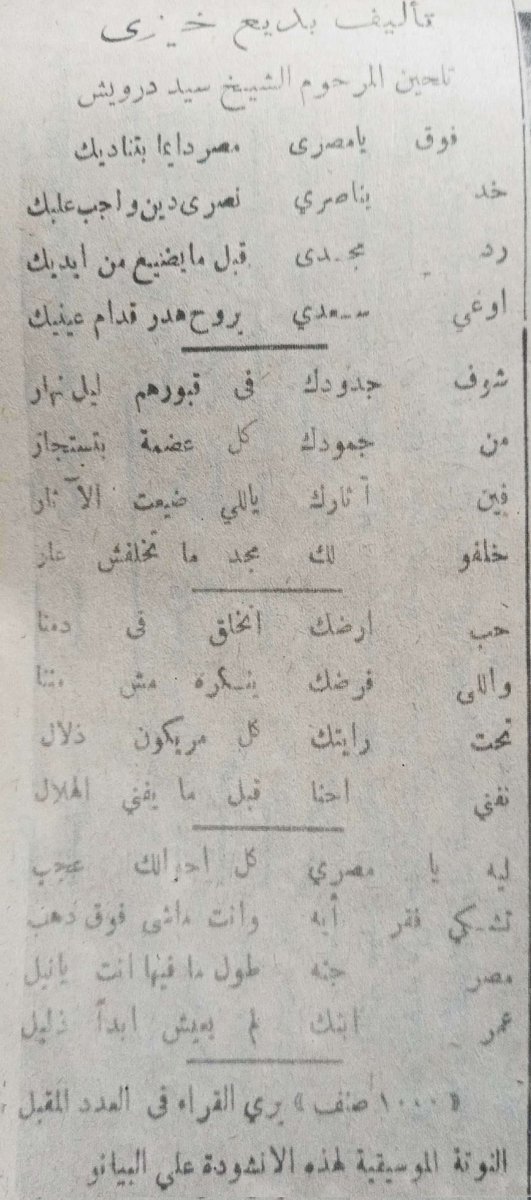 تأليف بديع خيرى
تلحين المرحوم الشيخ سيد درويش
فوق يامصرى مصر دايما بتناديك
خد يناصري نصرى دين واجب عليك
رد مجدى قبل ما يضيع من ايديك
اوعي سعدي يروح هدر قدام عينيك
شوف جدودك فى قبورهم ليل نهار
من جمودك كل عضمة بتستجار
فين آثارك ياللي ضيعت الآثار
خلفو لك مجد ما تخلفش عار
حب ارضك انخلق فى دمنا
واللى فرضك ينكره مش مننا
تحت رايتك كل مريكون ذلال
نفني احنا قبل ما يفني الهلال
ليه يا مصري كل احوالك عجب
تشكي فقر أيه وانت ماشى فوق دهب
مصر جنه طول ما فيها انت يانيل
عمر ابنك لم يعيش ابدأ ذليل
« ١٠٠٠ صنف » يري القراء فى العدد المقبل
النوتة الموسيقية لهذه الانشودة علي البيانو